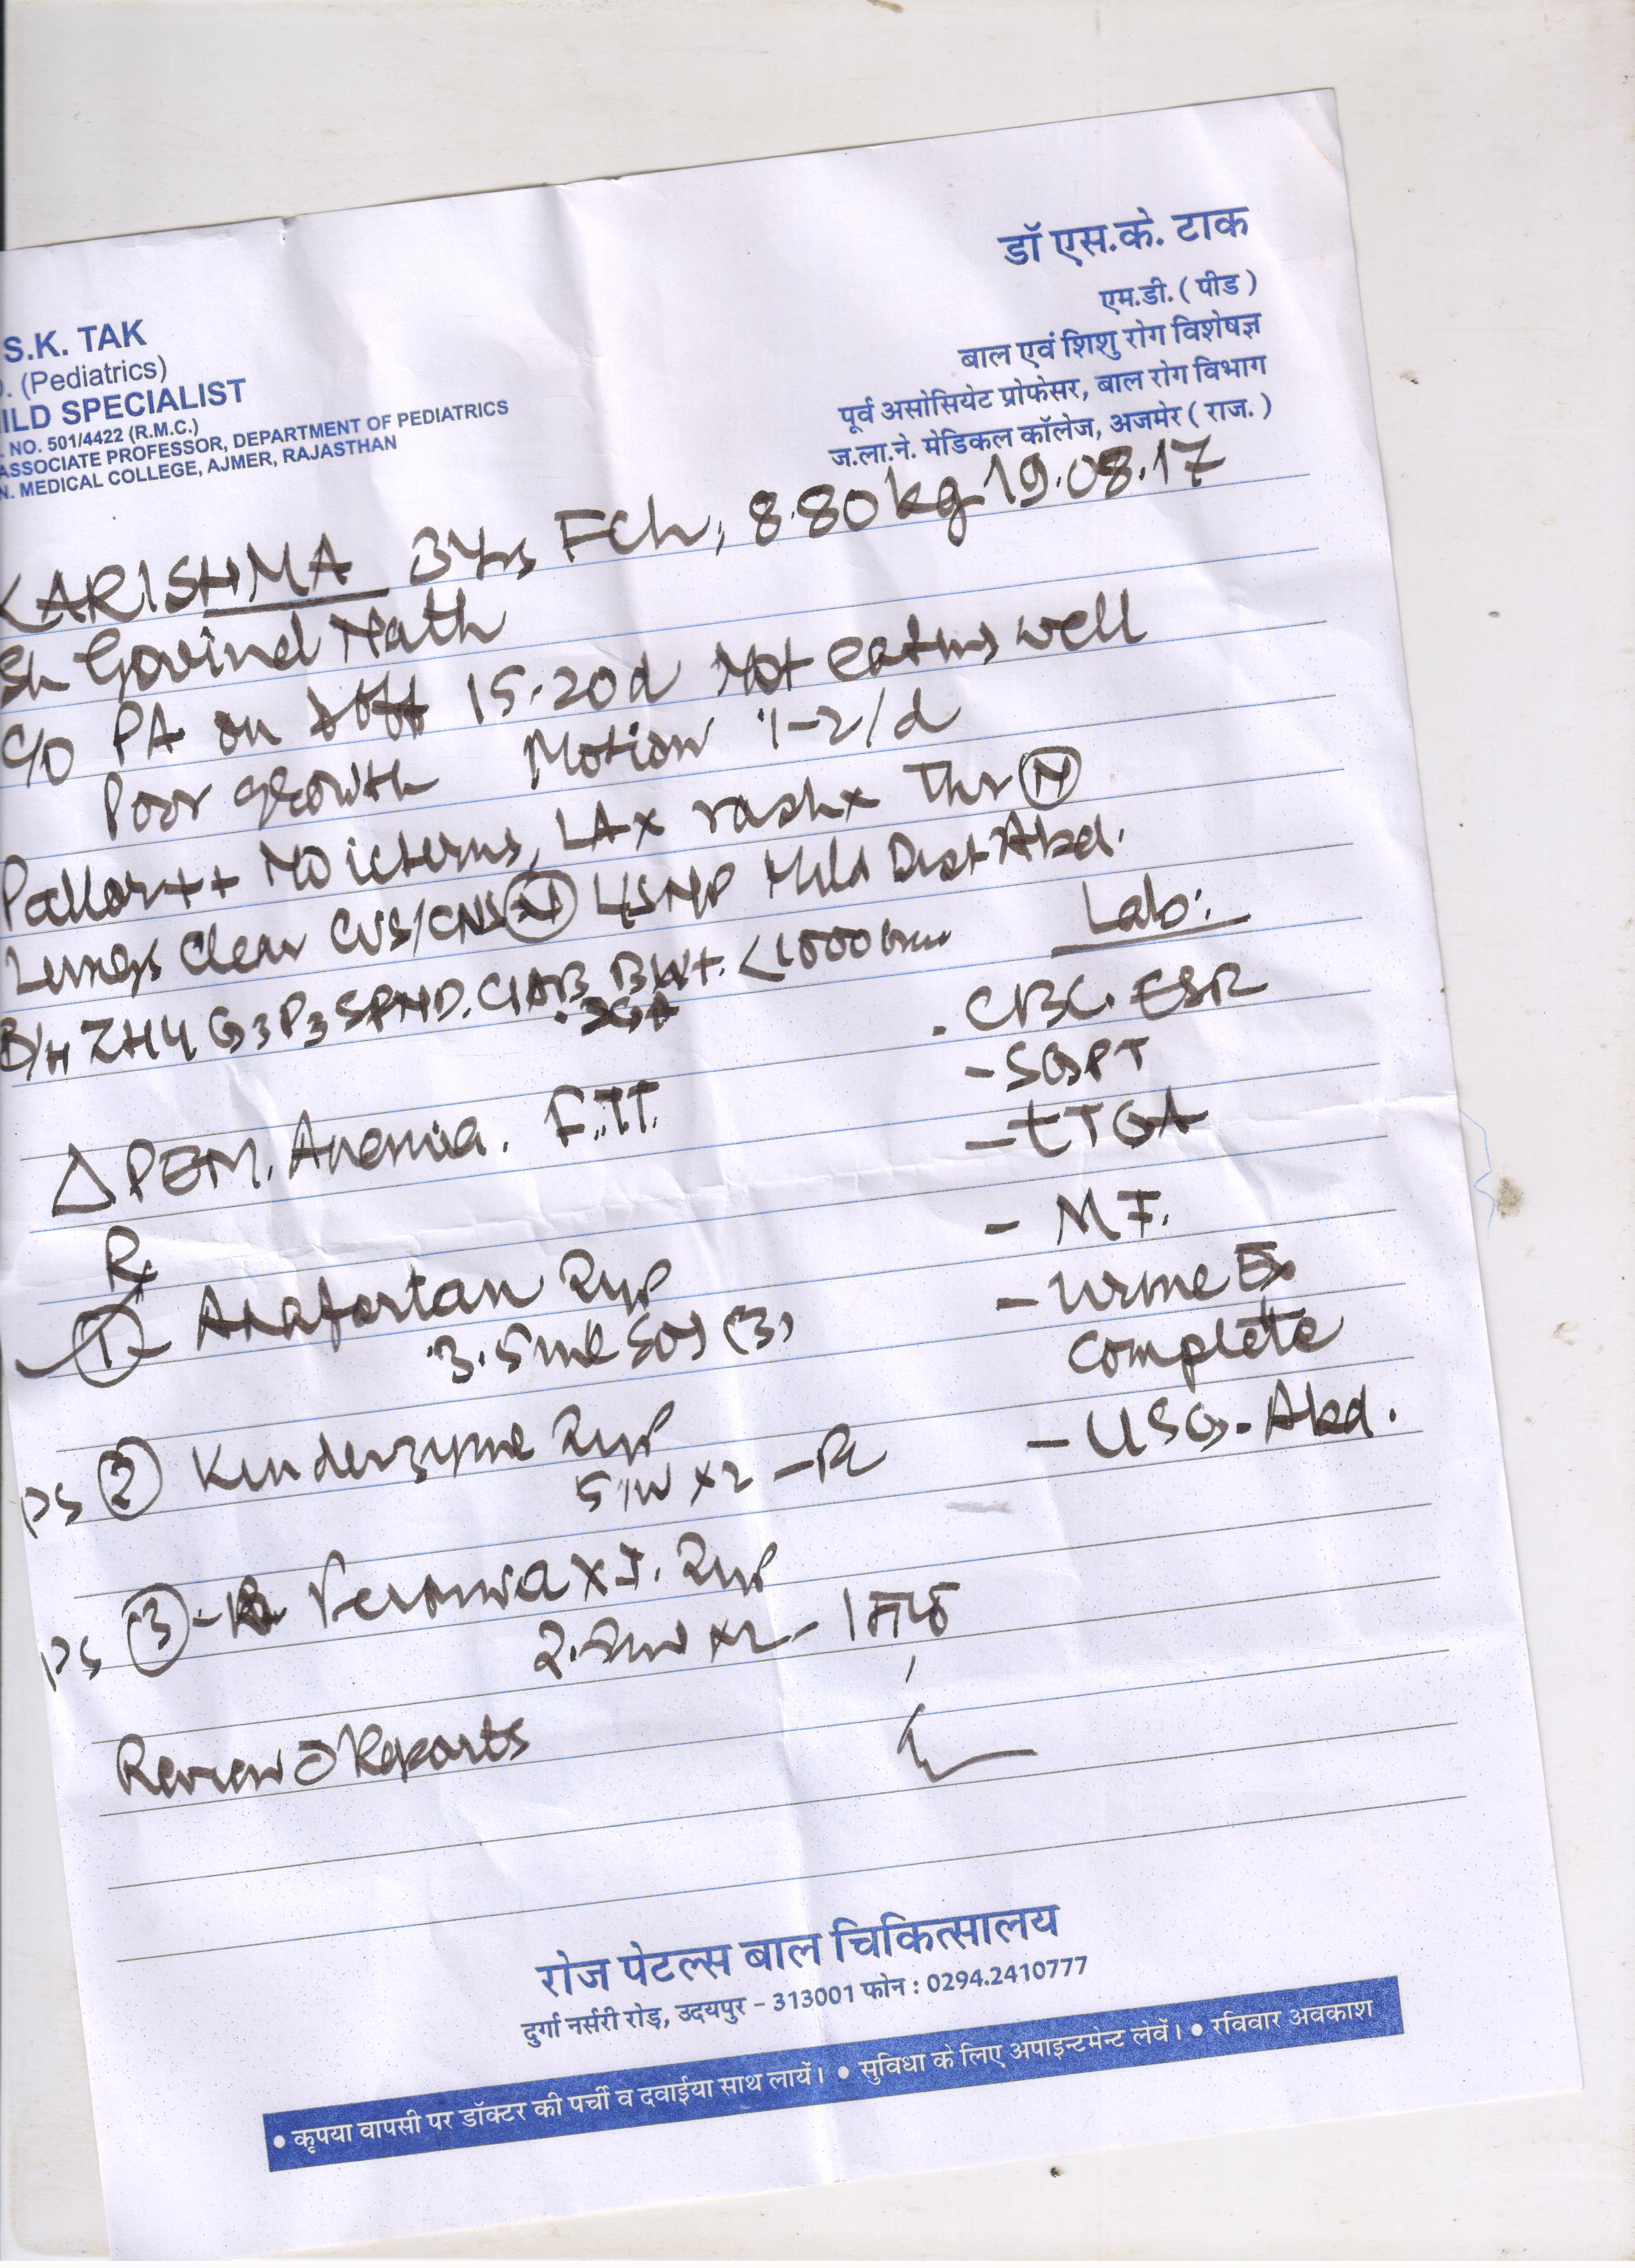 डॉ एस.के. टाक
एम.डी. ( पीड )
बाल एवं शिशु रोग विशेषज्ञ
पूर्व असोसियेट प्रोफेसर, बाल रोग विभाग
ज.ला.ने. मेडिकल कॉलेज, अजमेर ( राज. )
S.K. TAK
. (Pediatrics)
ILD SPECIALIST
. NO. 501/4422 (R.M.C.)
ASSOCIATE PROFESSOR, DEPARTMENT OF PEDIATRICS
N. MEDICAL COLLEGE, AJMER, RAJASTHAN
KARISHMA 3Yrs FCh, 8.80kg 19.08.17
Sh Govind Nath
C/O PA on & off 15-20d Not eating well
Poor growth Motion 1-2/d
Pallor++ No icterus, LAx rash x Thr (N)
Lungs Clear CVS/CNS (N) LSNP Mild Dist Abd.
B/H G3P3 CIAB BWt. <1500Gm
SGA
Lab:
- CBC. ESR
- SGPT
- tTGA
- MT.
- Urine Ex
Complete
- USG-Abd.
Δ PEM. Anemia. F.T.T.
Rx
① Anafortan Syp
3.5ml SOS (3)
② Kinderzyme Syp
5ml x 2
③ XT. Syp
x2 - 1 माह
Review c Reports
रोज पेटल्स बाल चिकित्सालय
दुर्गा नर्सरी रोड़, उदयपुर - 313001 फोन : 0294.2410777
• कृपया वापसी पर डॉक्टर की पर्ची व दवाईया साथ लायें। • सुविधा के लिए अपाइन्टमेन्ट लेवें। • रविवार अवकाश